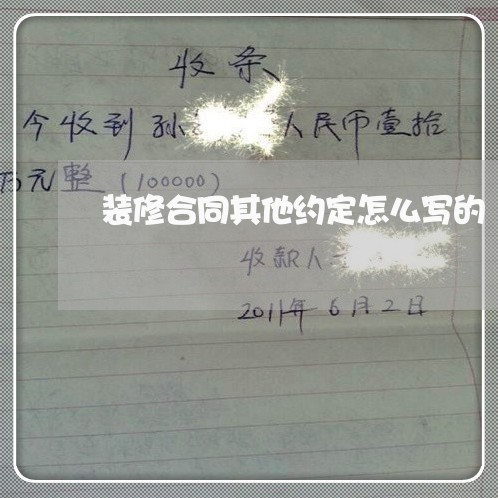 收条
今收到孙 人民币壹拾
万元整（100000）
装修合同其他约定怎么写的
收款人
2011年6月2日